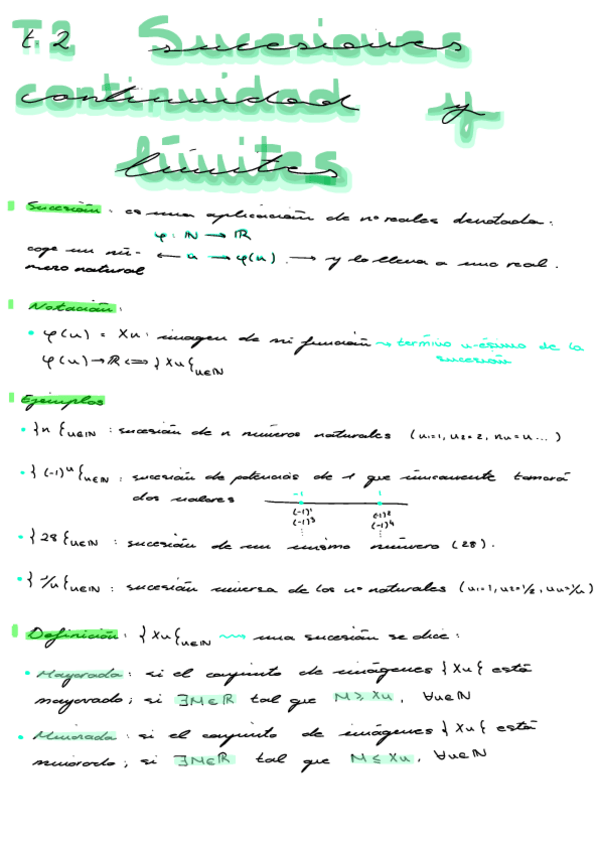 t. 2 Sucesiones
continuidad y
límites
Sucesión: es una aplicación de nº reales denotada:
φ: ℕ → ℝ
coge un nú- ← n → φ(n). → y lo lleva a uno real.
mero natural
Notación:
• φ(n) = Xn: imagen de mi función → término n-ésimo de la
sucesión
φ(n) → ℝ ⟺ }Xn{n∈ℕ
Ejemplos
• }n{n∈ℕ : sucesión de n números naturales (u1=1, u2=2, nu=u...)
• }(-1)ⁿ{n∈ℕ : sucesión de potencias de -1 que únicamente tomará
dos valores -1 1
(-1)¹ (-1)²
(-1)³ (-1)⁴
⋮ ⋮
• }28{n∈ℕ : sucesión de un mismo número (28).
• }1/n{n∈ℕ : sucesión inversa de los nº naturales (u1=1, u2=1/2, un=1/n)
Definición: }Xn{n∈ℕ → una sucesión se dice:
• Mayorada: si el conjunto de imágenes }Xn{ está
mayorado; si ∃M∈ℝ tal que M ≥ Xn, ∀n∈ℕ
• Minorada: si el conjunto de imágenes }Xn{ está
minorado; si ∃M∈ℝ tal que M ≤ Xn, ∀n∈ℕ